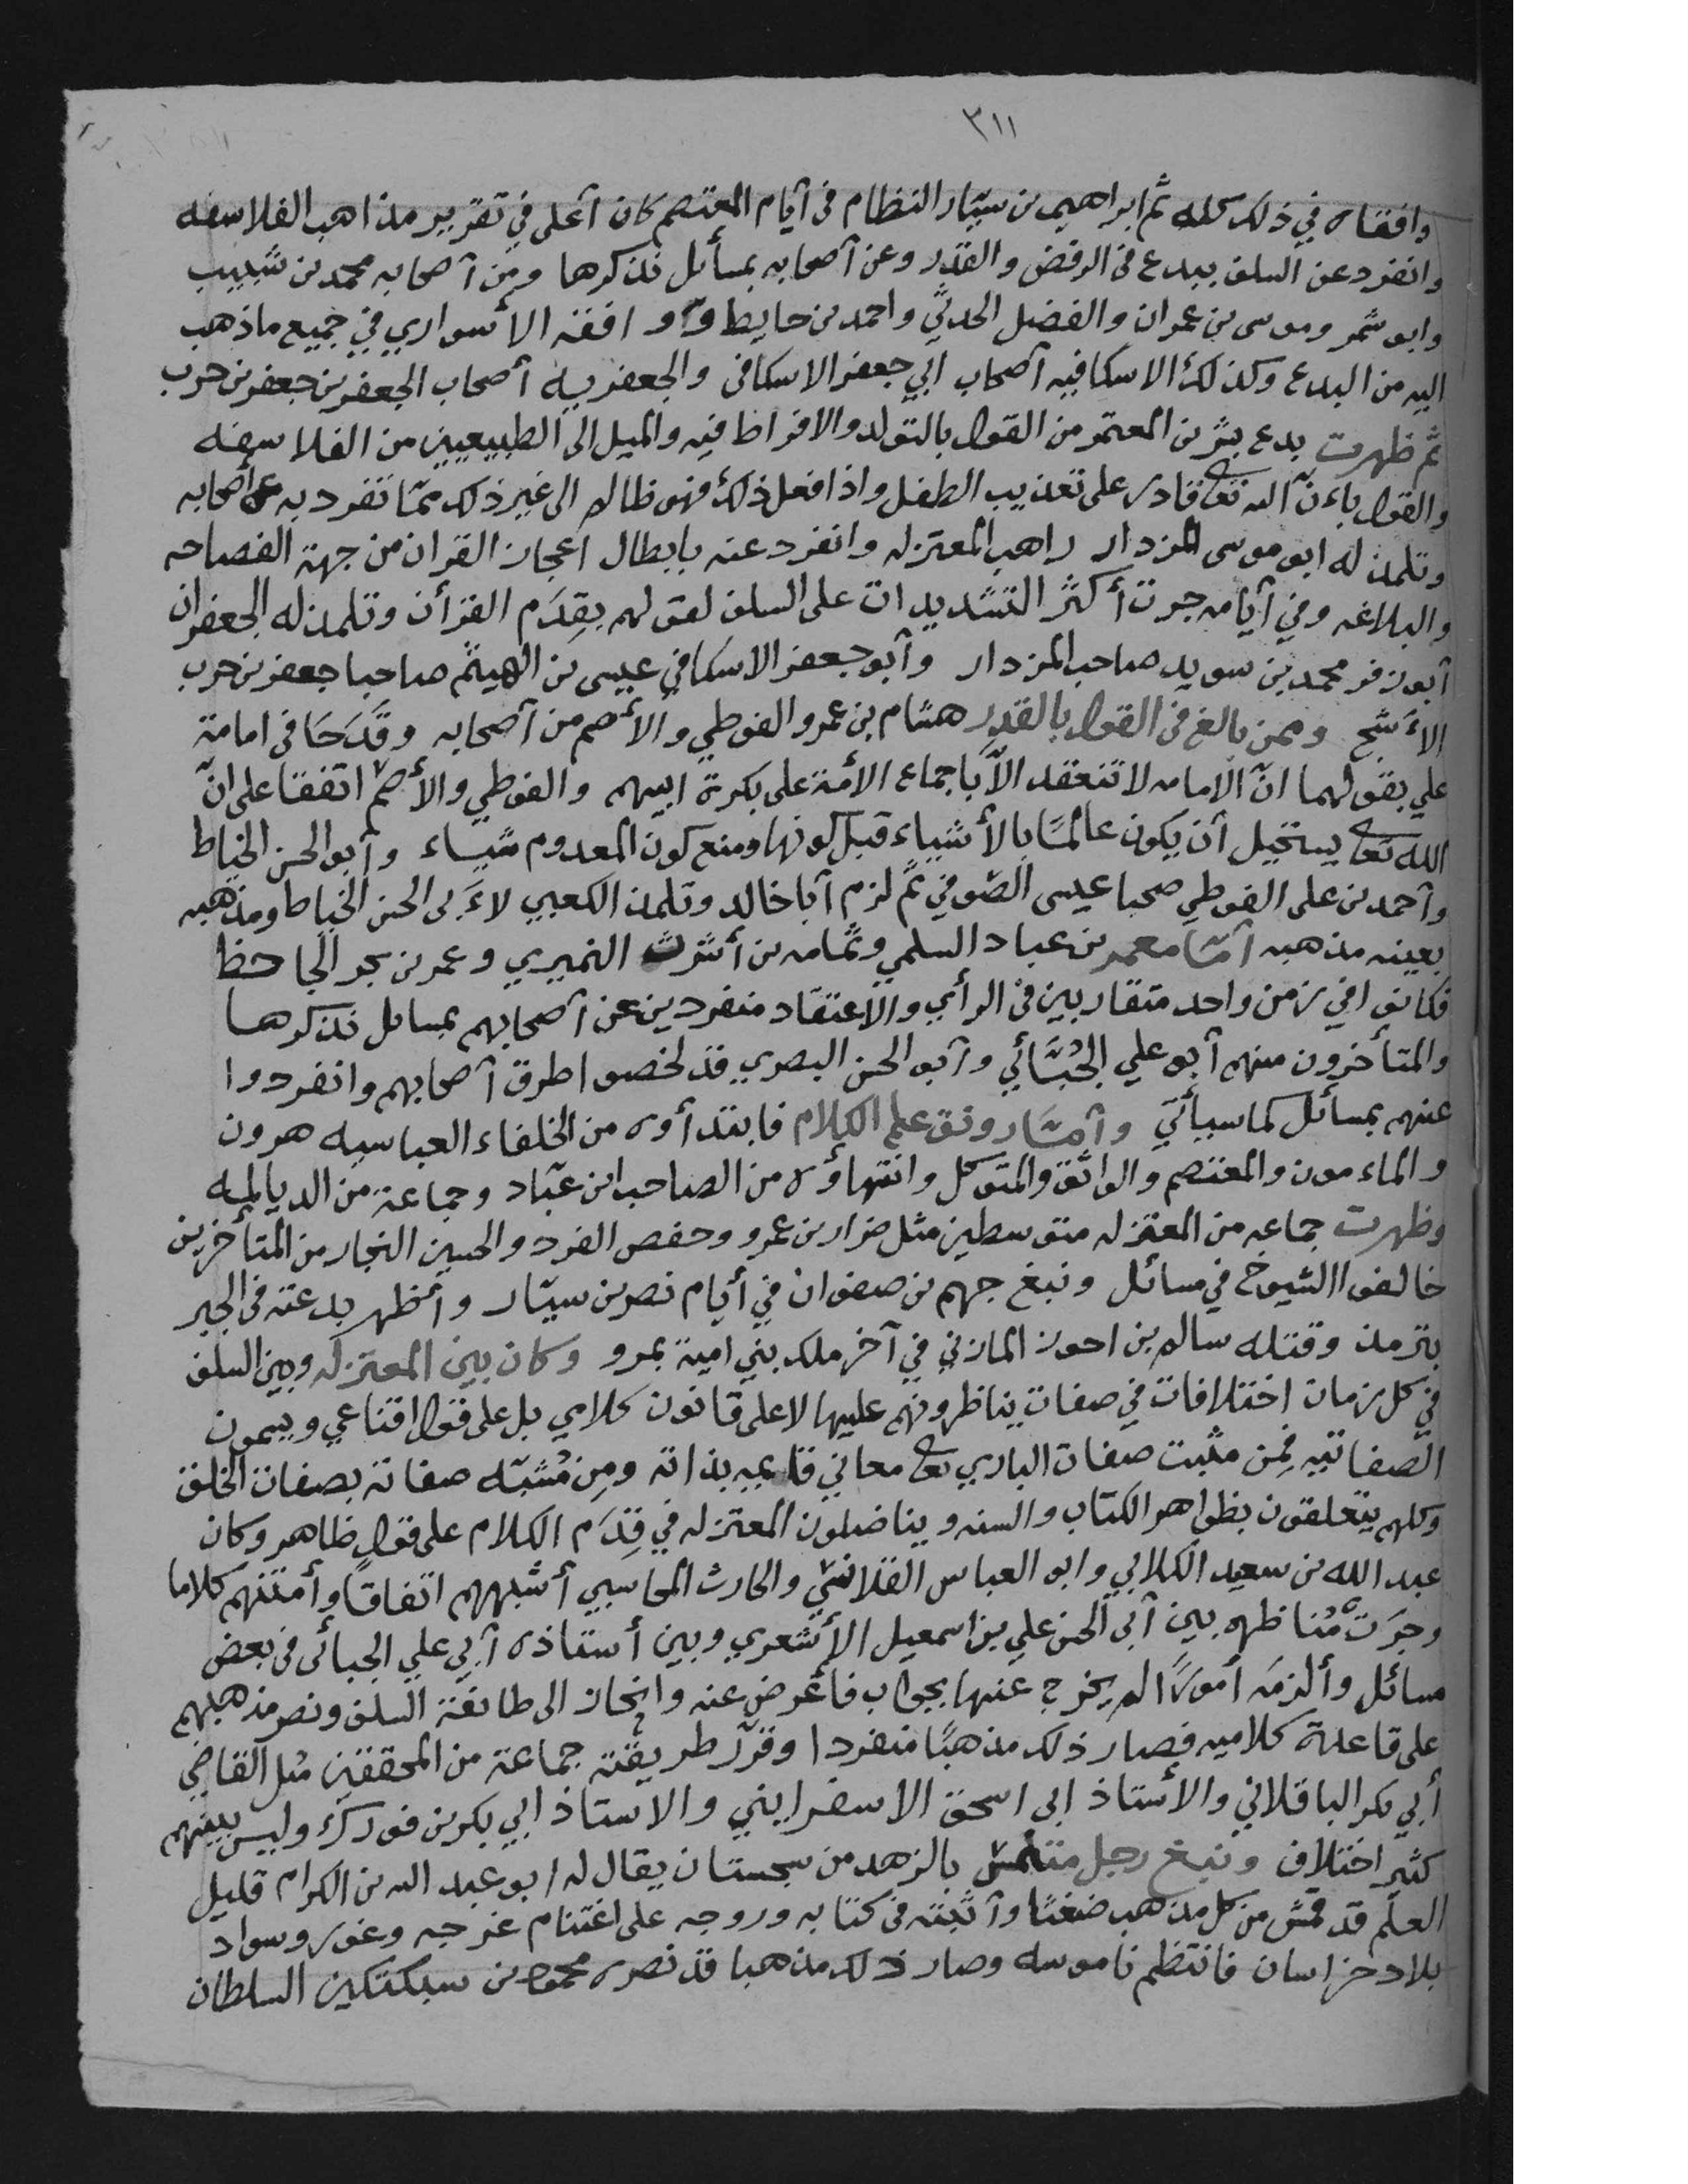 ٣١١
وافقاه في ذلك كله ثم ابراهيم بن سيّار النظام في أيام المعتصم كان أعلى في تقرير مذاهب الفلاسفه
وانفرد عن السلف ببدع في الرفض والقدر وعن أصحابه بمسأئل نذكرها ومن أصحابه محمد بن شبيب
وابو شمر وموسى بن عمران والفضل الحدثي واحمد بن حايط و وافقه الأسواري في جميع ماذهب
اليه من البدع وكذلك الاسكافيه أصحاب ابي جعفر الاسكافى والجعفريه أصحاب الجعفر بن جعفر بن حرب
ثم ظهرت بدع بشر بن المعتمر من القول بالتولد والافراط فيه والميل الى الطبيعيين من الفلاسفه
والقول بأنّ الله تعا قادر على تعذيب الطفل واذا فعل ذلك فهو ظالم الى غير ذلك ممّا تفرد به عن أصحابه
وتلمذ له ابو موسى المزدار راهب المعتزله وانفرد عنه بابطال اعجاز القران من جهة الفصاحه
والبلاغه وفي أيامه جرت أكثر التشديدات على السلف لقولهم بقِدَم القرأن وتلمذ له الجعفران
أبو زفر محمد بن سويد صاحب المزدار وأبو جعفر الاسكافي عيسى بن الهيثم صاحبا جعفر بن حرب
الأشج وممن بالغ في القول بالقدر هشام بن عمرو الفوطي والأصم من أصحابه وقَدَحَا في امامة
علي بقولهما انّ الامامه لا تنعقد الاّ باجماع الأمة على بكرة ابيهم والفوطي والأصم اتفقا على انّ
الله تعا يستحيل أن يكون عالمًا بالأشياء قبل كونها ومنع كون المعدوم شيىاء وأبو الحسن الخياط
وأحمد بن على الفوطي صحبا عيسى الصوفي ثم لزم أبا خالد وتلمذ الكعبي لأبى الحسن الخياط ومذهبه
بعينه مذهبه أمّا معمر بن عباد السلمي وثمامه بن أشرث النميري وعمر بن بحر الجاحظ
فكانوا في زمن واحد متقاربين في الرأي والاعتقاد منفردين عن أصحابهم بمسائل نذكرها
والمتأخرون منهم أبو علي الجُبّائي وأبو الحسن البصري قد لخصوا طرق أصحابهم وانفردوا
عنهم بمسائل كما سيأتي وأمّا رونق علم الكلام فابتدأوه من الخلفاء العباسيه هرون
والماءمون والمعتصم والواثق والمتوكل وانتهاؤه من الصاحب ابن عبّاد وجماعة من الديالمه
وظهرت جماعه من المعتزله متوسطين مثل ضرار بن عمرو وحفص الفرد والحسين النجار من المتأخرين
خالفوا الشيوخ في مسائل ونبغ جهم بن صفوان في أيام نصر بن سيّار وأظهر بدعته في الجبر
بترمذ وقتله سالم بن احوز المازني في آخر ملك بني امية بمرو وكان بين المعتزله وبين السلف
في كل زمان اختلافات في صفات يناظرونهم عليها لا على قانون كلامي بل على قول اقناعي ويسمون
الصفاتيه فمِن مثبت صفات الباري تعا معاني قايمه بذاته ومِن مُشَبّه صفاته بصفات الخلق
وكلهم يتعلقون بظواهر الكتاب والسنه ويناضلون المعتزله في قِدَم الكلام على قول ظاهر وكان
عبد الله بن سعيد الكلابي وابو العباس القلانسي والحارث المحاسبي أشبههم اتفاقًا وأمتنهم كلاما
وجَرَت مُناظره بين أبى الحسن علي بن اسمعيل الأشعري وبين أستاذه أبي علي الجبائى في بعض
مسائل وألزمَه أمورًا لم يخرج عنها بجواب فأعرض عنه وانحاز الى طائفة السلف ونصر مذهبهم
على قاعدة كلاميه فصار ذلك مذهبًا منفردا وقرّر طريقته جماعة من المحققين مثل القاضي
أبي بكر الباقلاني والأستاذ ابى اسحق الاسفرايني والاستاذ ابي بكر بن فورك وليس بينهم
كثير اختلاف ونبغ رجل متنمس بالزهد من سجستان يقال له ابو عبد الله بن الكرام قليل
العلم قد قمش من كل مذهب ضغثًا وأثبته في كتابه وروجه على اغتنام غرجه وغور وسواد
بلاد خراسان فانتظم ناموسه وصار ذلك مذهبا قد نصره محمود بن سبكتكين السلطان